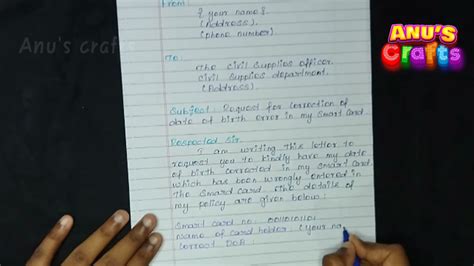 Anu's crafts
ANU'S
Crafts
From:
{ your name }.
(Address).
(phone number)
To:
The Civil Supplies officer.
Civil Supplies department.
(Address).
Subject: Request for correction of
date of birth error in my Smart Card.
Respected Sir,
I am writing this letter to
request you to kindly have my date
of birth corrected in my Smart Card,
which has been wrongly entered in
the Smart Card. The details of
my policy are given below:
Smart card no: 
name of Card holder: (your na
Correct DOB: